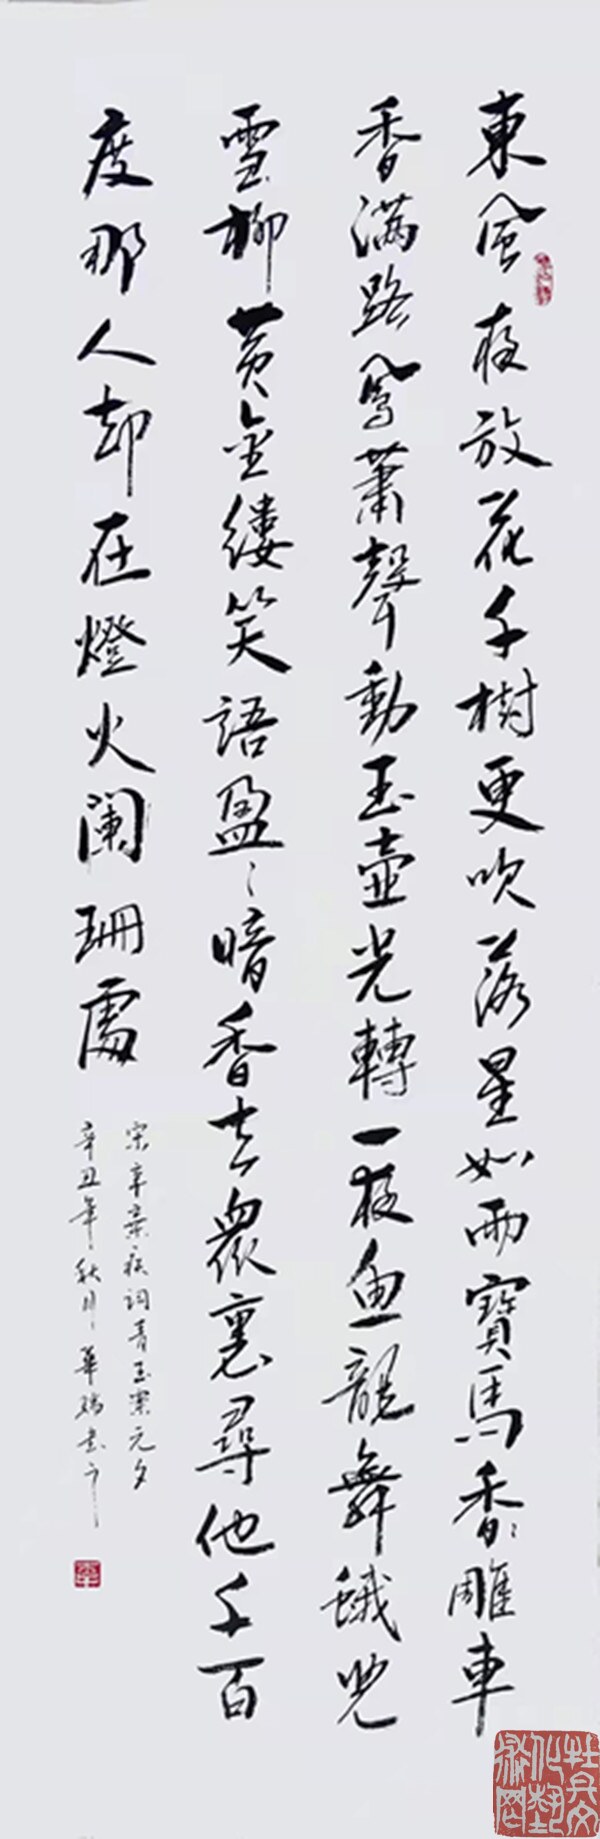 東風夜放花千樹更吹落星如雨寶馬香雕車
香滿路鳳蕭聲動玉壺光轉一夜魚龍舞蛾兒
雪柳黄金縷笑語盈〻暗香去衆裏尋他千百
度那人却在燈火闌珊處
宋辛棄疾詞青玉案元夕
辛丑年秋月華瑞書